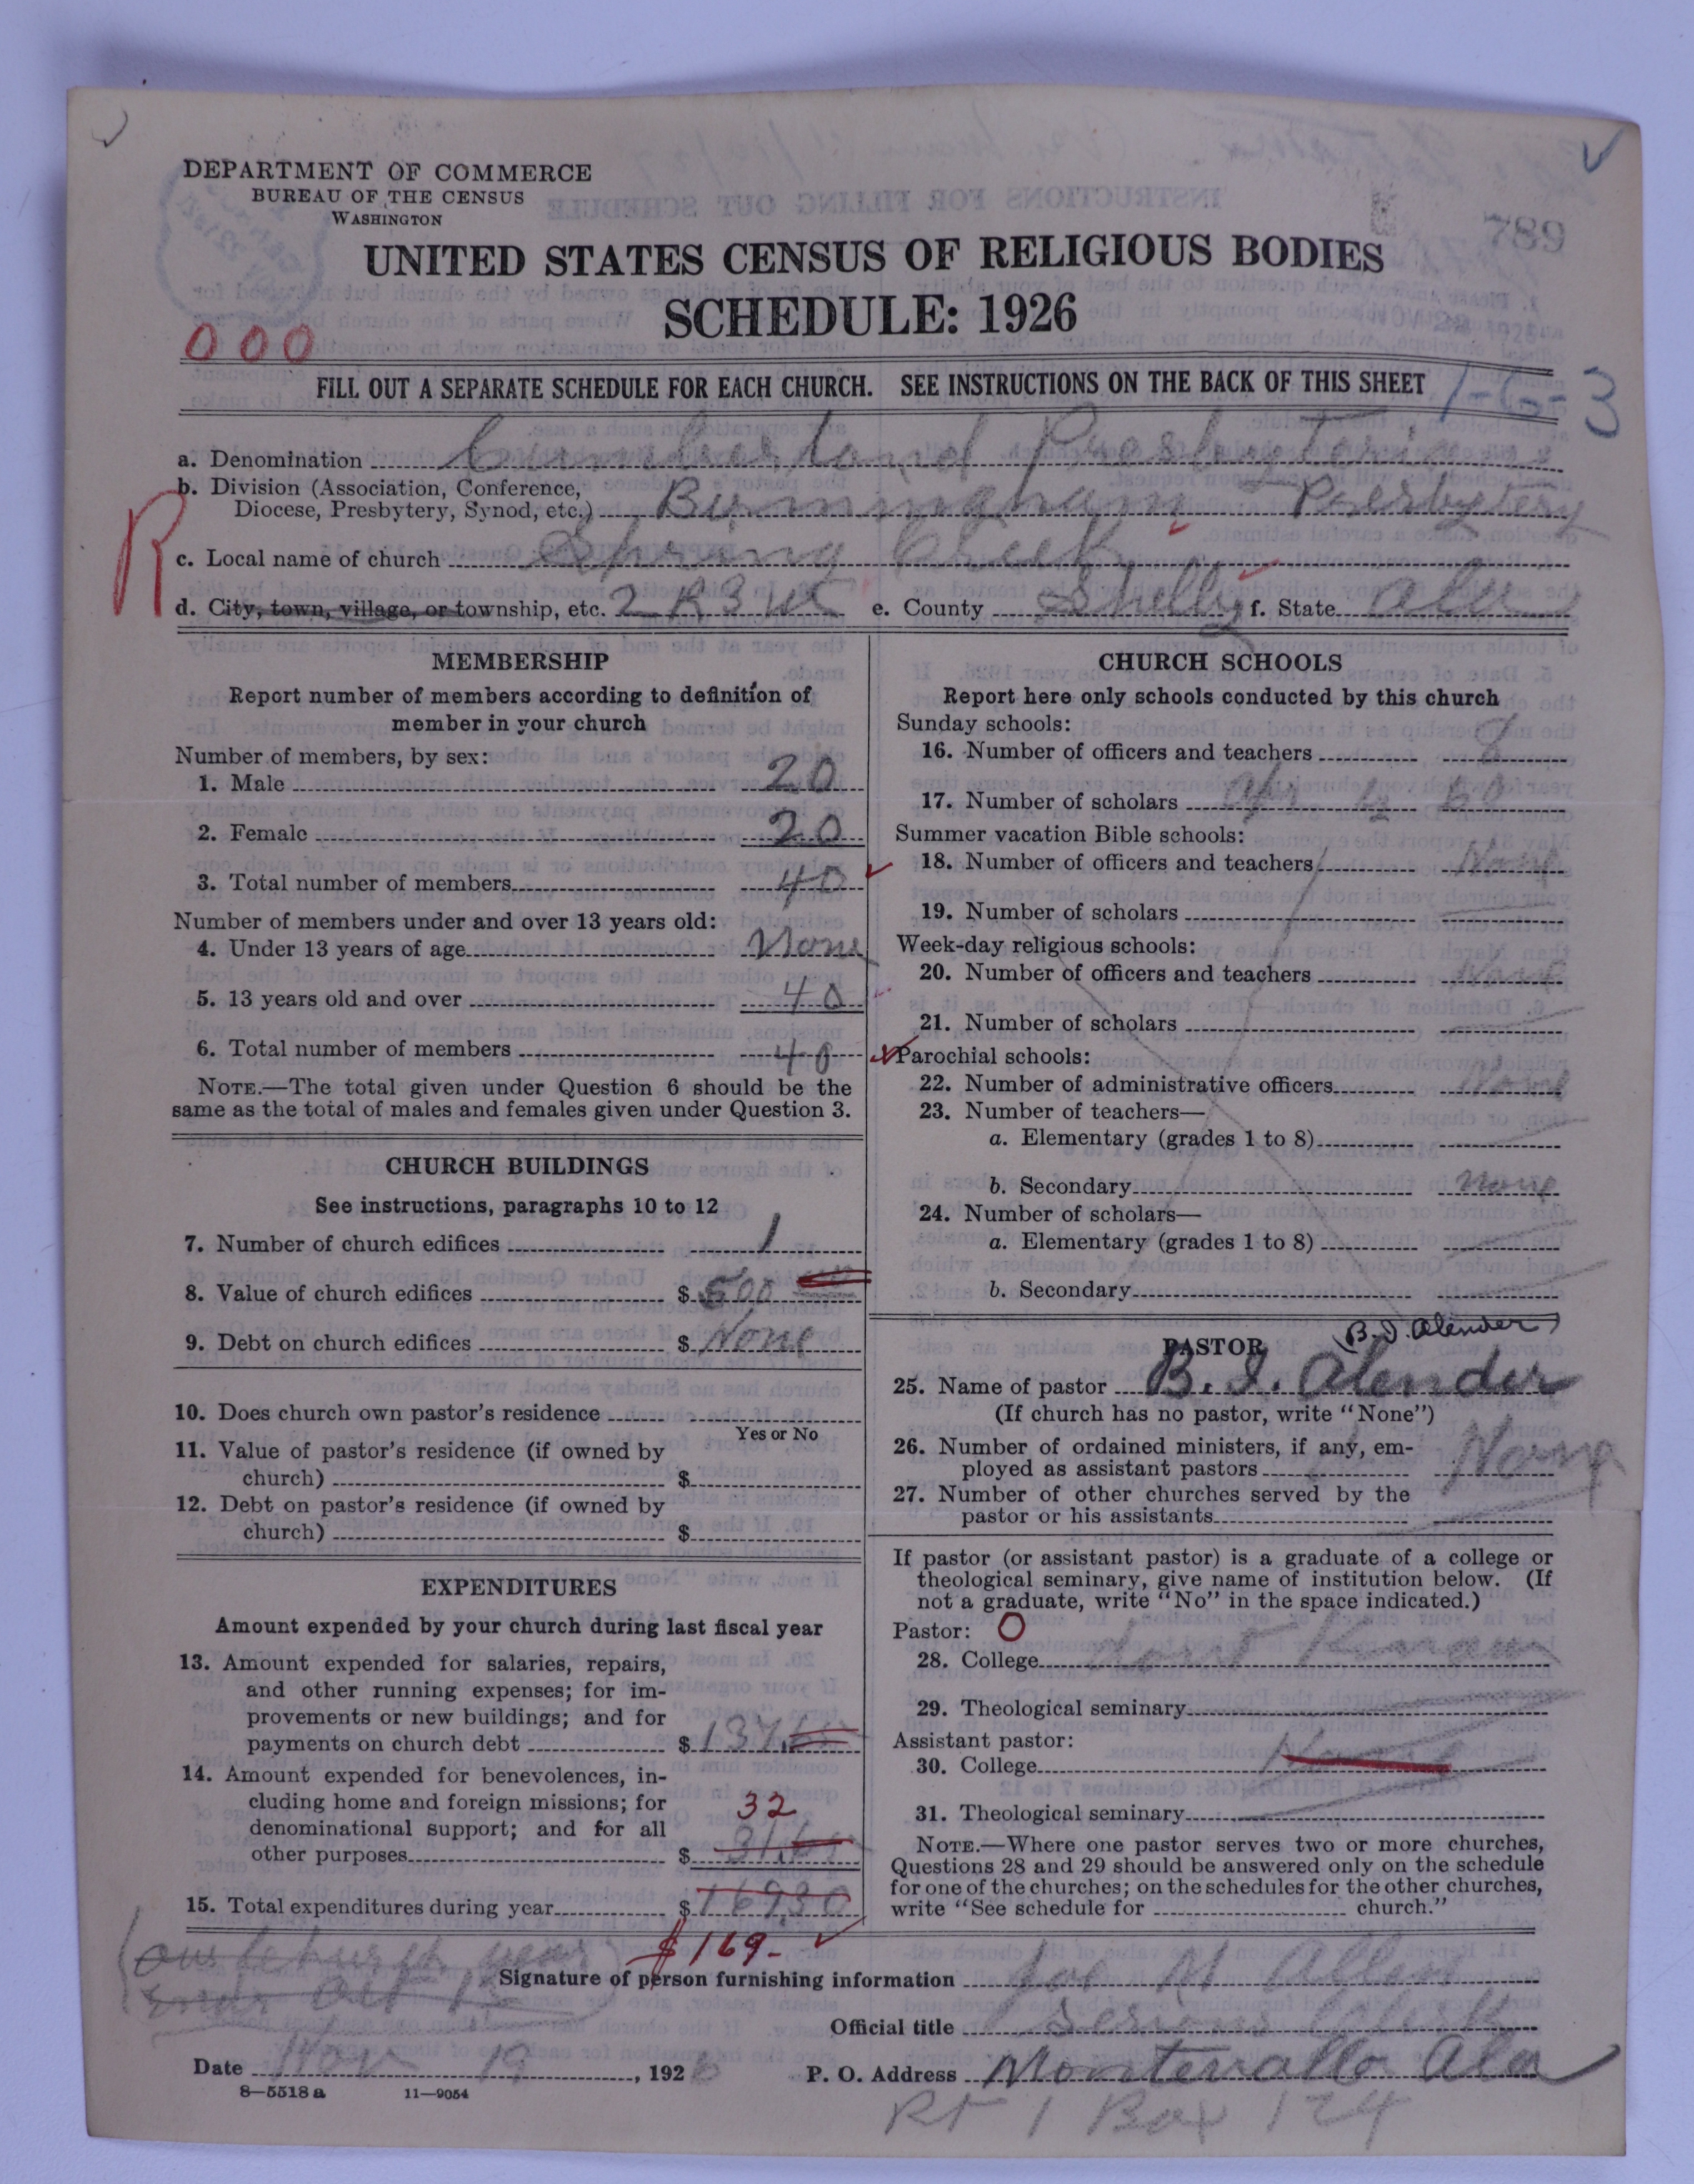 DEPARTMENT OF COMMERCE
BUREAU OF THE CENSUS
WASHINGTON
789
UNITED STATES CENSUS OF RELIGIOUS BODIES
SCHEDULE: 1926
NOV 22 1926
000
FILL OUT A SEPARATE SCHEDULE FOR EACH CHURCH. SEE INSTRUCTIONS ON THE BACK OF THIS SHEET
1-G-3
a. Denomination Cumberland Presbyterian
b. Division (Association, Conference,
Diocese, Presbytery, Synod, etc.) Birmingham Presbytery
R
c. Local name of church Spring Creek
d. City, town, village, or township, etc. e. County Shelby f. State Ala
MEMBERSHIP
Report number of members according to definition of
member in your church
Number of members, by sex:
1. Male 20
2. Female 20
3. Total number of members 40
Number of members under and over 13 years old:
4. Under 13 years of age None
5. 13 years old and over 40
6. Total number of members 40
NOTE.—The total given under Question 6 should be the
same as the total of males and females given under Question 3.
CHURCH BUILDINGS
See instructions, paragraphs 10 to 12
7. Number of church edifices 1
8. Value of church edifices $ 500
9. Debt on church edifices $ None
10. Does church own pastor's residence
Yes or No
11. Value of pastor's residence (if owned by
church) $
12. Debt on pastor's residence (if owned by
church) $
EXPENDITURES
Amount expended by your church during last fiscal year
13. Amount expended for salaries, repairs,
and other running expenses; for im-
provements or new buildings; and for
payments on church debt $ 137.65
14. Amount expended for benevolences, in-
cluding home and foreign missions; for
denominational support; and for all
32
other purposes $ 31.65
15. Total expenditures during year $ 169.30
$169-
CHURCH SCHOOLS
Report here only schools conducted by this church
Sunday schools:
16. Number of officers and teachers 8
17. Number of scholars 60
Summer vacation Bible schools:
18. Number of officers and teachers None
19. Number of scholars
Week-day religious schools:
20. Number of officers and teachers None
21. Number of scholars
Parochial schools:
22. Number of administrative officers None
23. Number of teachers—
a. Elementary (grades 1 to 8)
b. Secondary None
24. Number of scholars—
a. Elementary (grades 1 to 8)
b. Secondary
PASTOR (B.I. Alender)
25. Name of pastor B. I. Alender
(If church has no pastor, write "None")
26. Number of ordained ministers, if any, em-
ployed as assistant pastors None
27. Number of other churches served by the
pastor or his assistants
If pastor (or assistant pastor) is a graduate of a college or
theological seminary, give name of institution below. (If
not a graduate, write "No" in the space indicated.)
Pastor: O
28. College dont Know
29. Theological seminary
Assistant pastor:
30. College None
31. Theological seminary
NOTE.—Where one pastor serves two or more churches,
Questions 28 and 29 should be answered only on the schedule
for one of the churches; on the schedules for the other churches,
write "See schedule for church."
(our church year
ends Oct 1
Signature of person furnishing information Joe M Allen
Official title Clerk
Date Nov 19, 1926 P. O. Address Montevallo Ala
8—5518 a 11—9054
Rt 1 Box 124